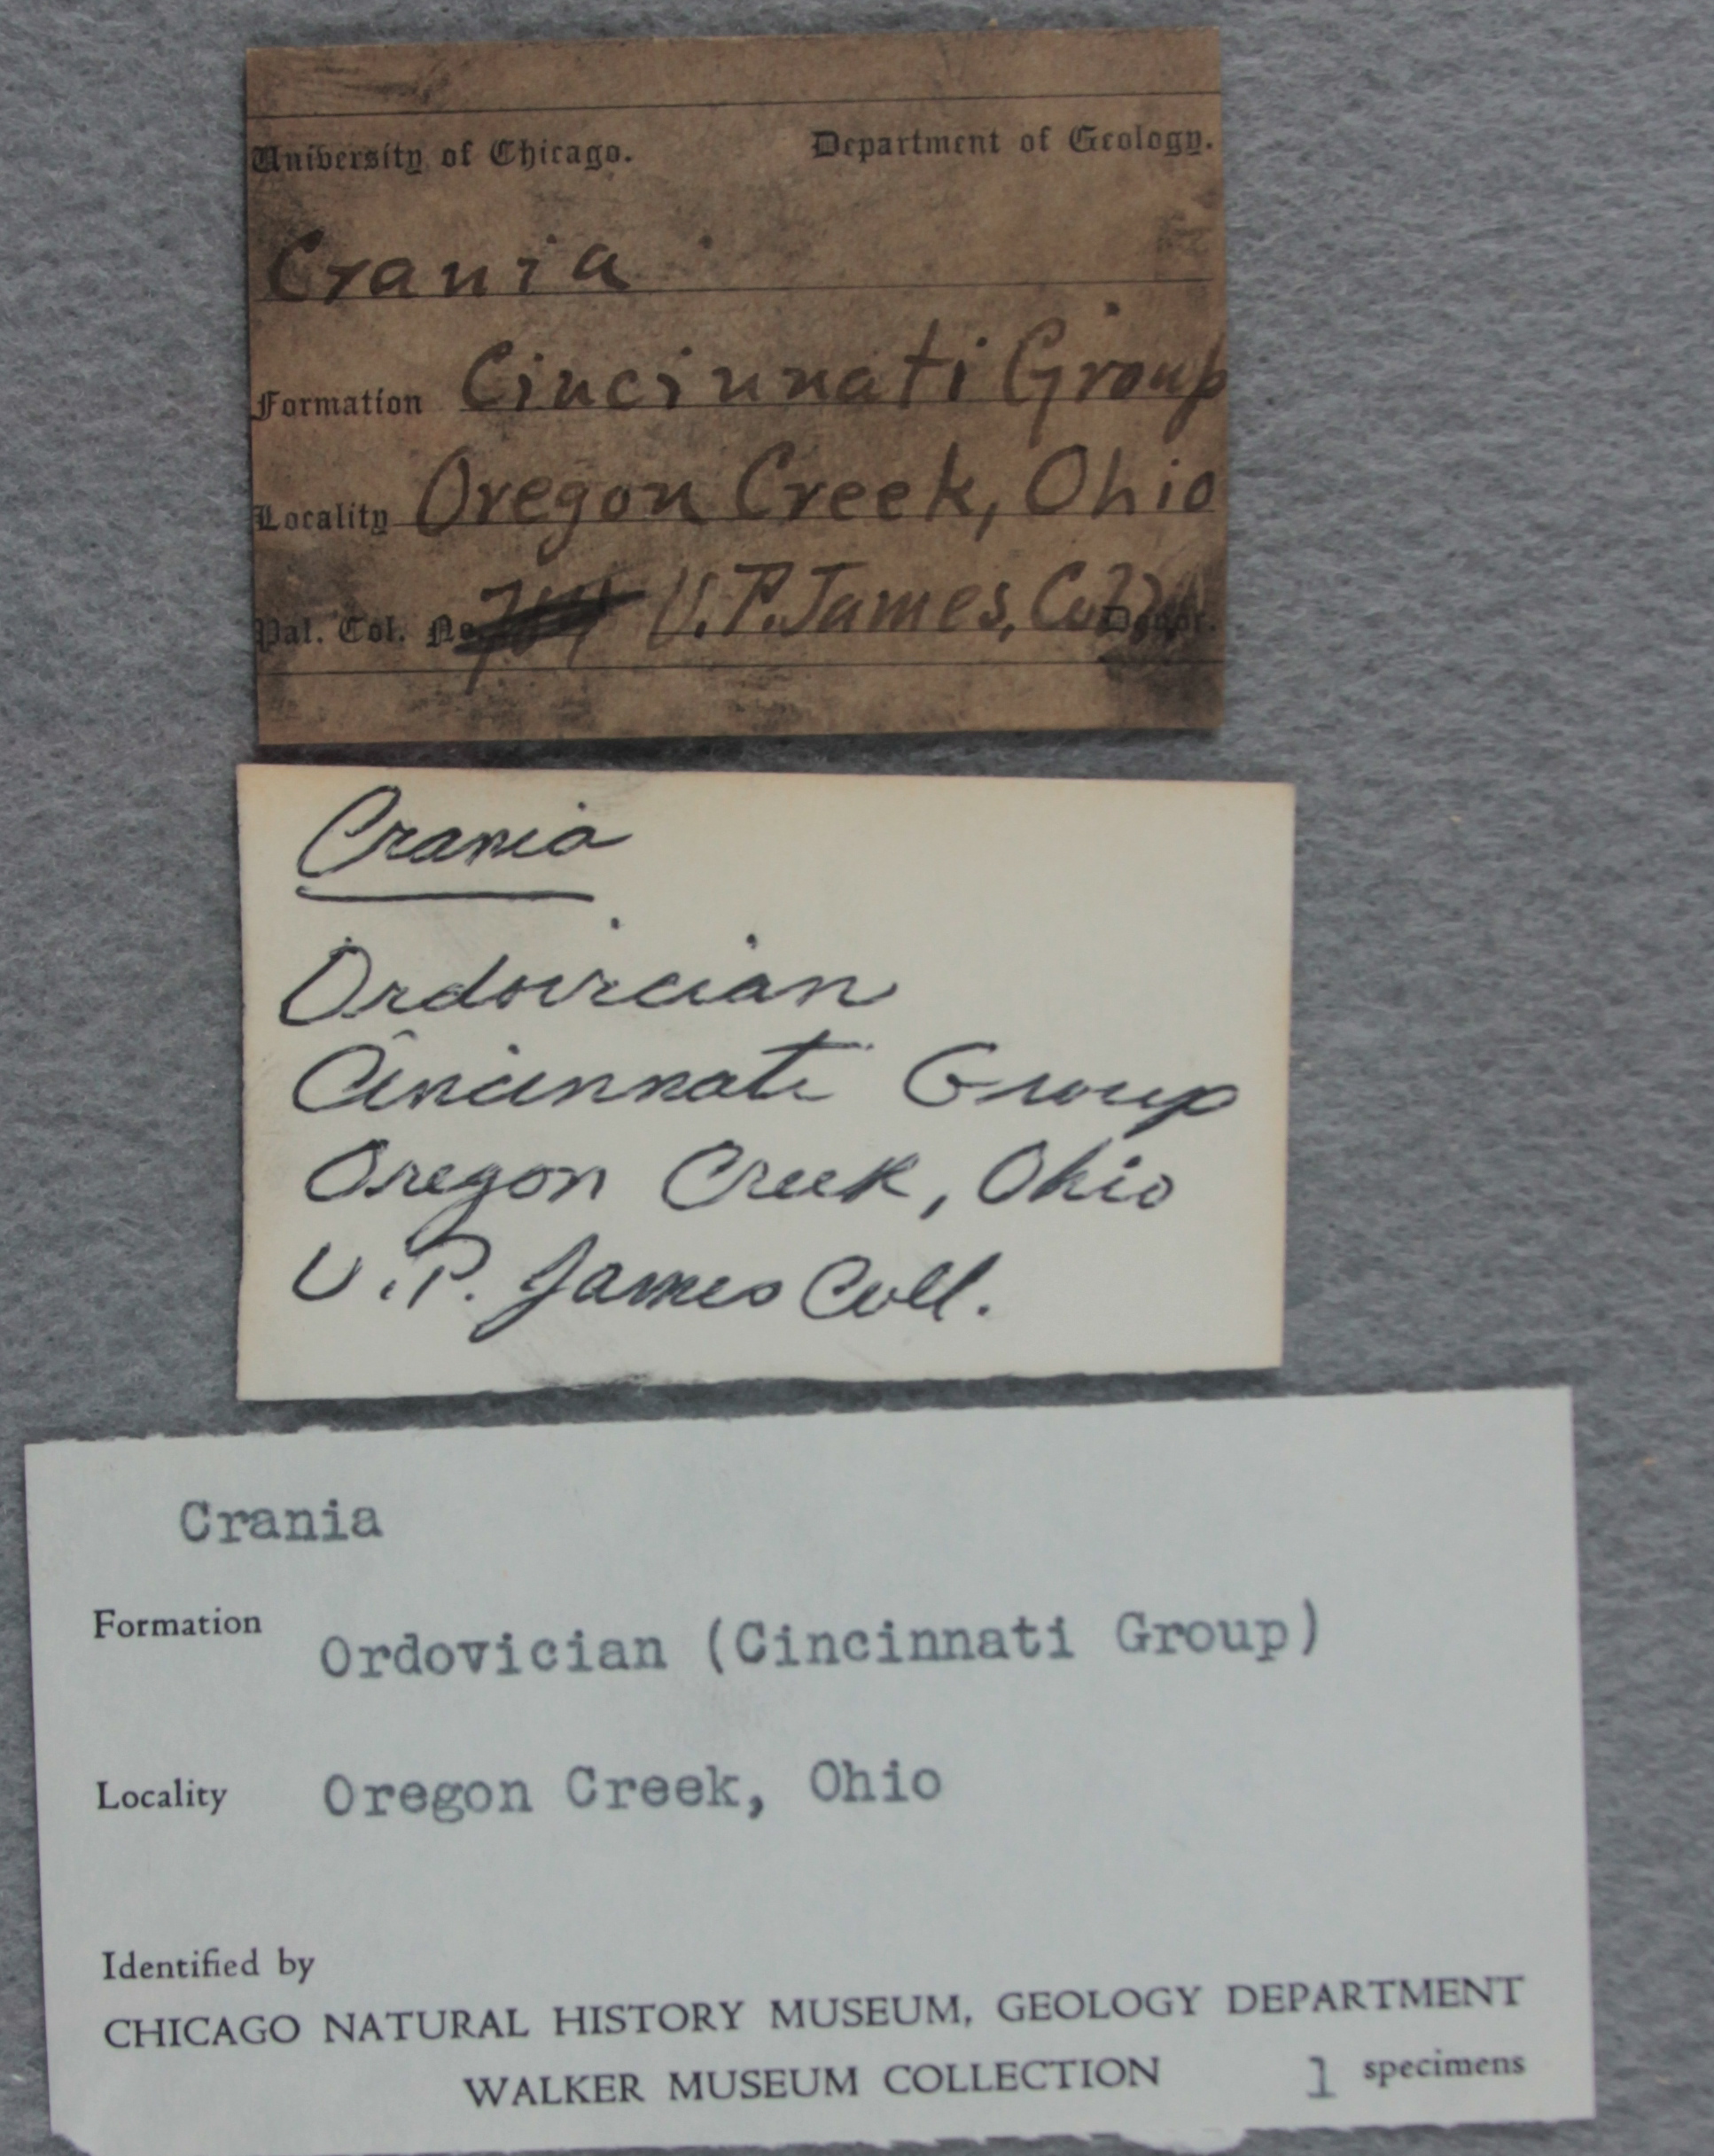 University of Chicago. Department of Geology.
Crania
Formation Cincinnati Group
Locality Oregon Creek, Ohio
Pal. Col. No. U.P. James, Coll. Donor.
Crania
Ordovician
Cincinnati Group
Oregon Creek, Ohio
U.P. James Coll.
Crania
Formation Ordovician (Cincinnati Group)
Locality Oregon Creek, Ohio
Identified by
CHICAGO NATURAL HISTORY MUSEUM, GEOLOGY DEPARTMENT
WALKER MUSEUM COLLECTION 1 specimens